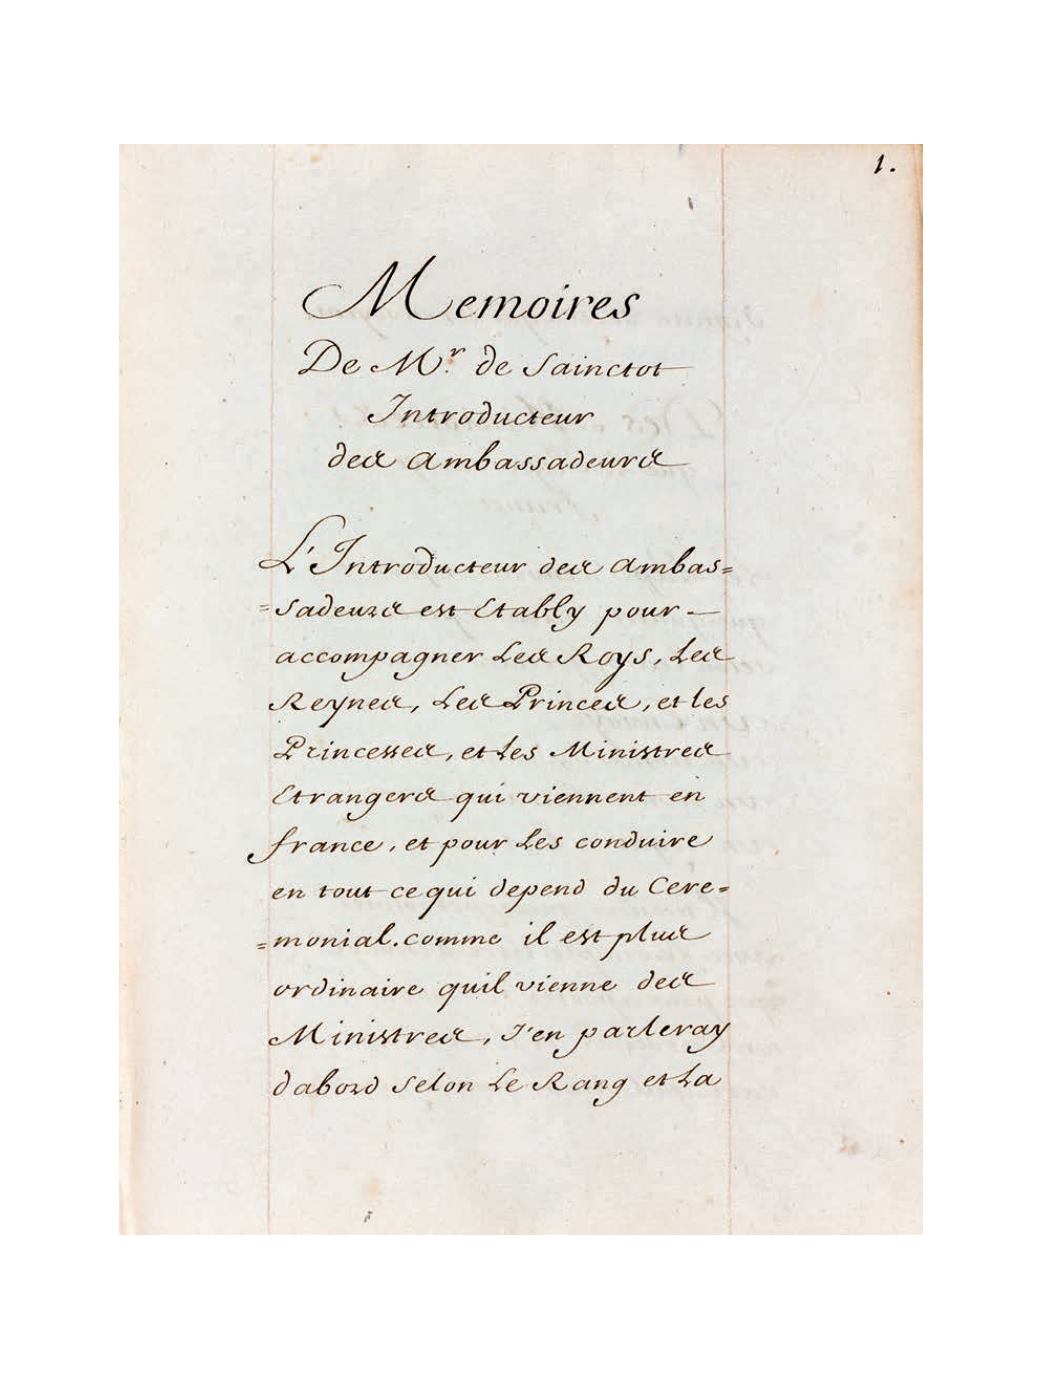 1.
Memoires
De Mr. de Sainctot
Introducteur
des Ambassadeurs
L'Introducteur des Ambas=
=sadeurs est Etably pour
accompagner Les Roys, Les
Reynes, Les Princes, et les
Princesses, et Les Ministres
Etrangers qui viennent en
france, et pour Les conduire
en tout ce qui depend du Cere=
=monial. comme il est plus
ordinaire quil vienne des
Ministres, J'en parleray
dabord Selon Le Rang et La